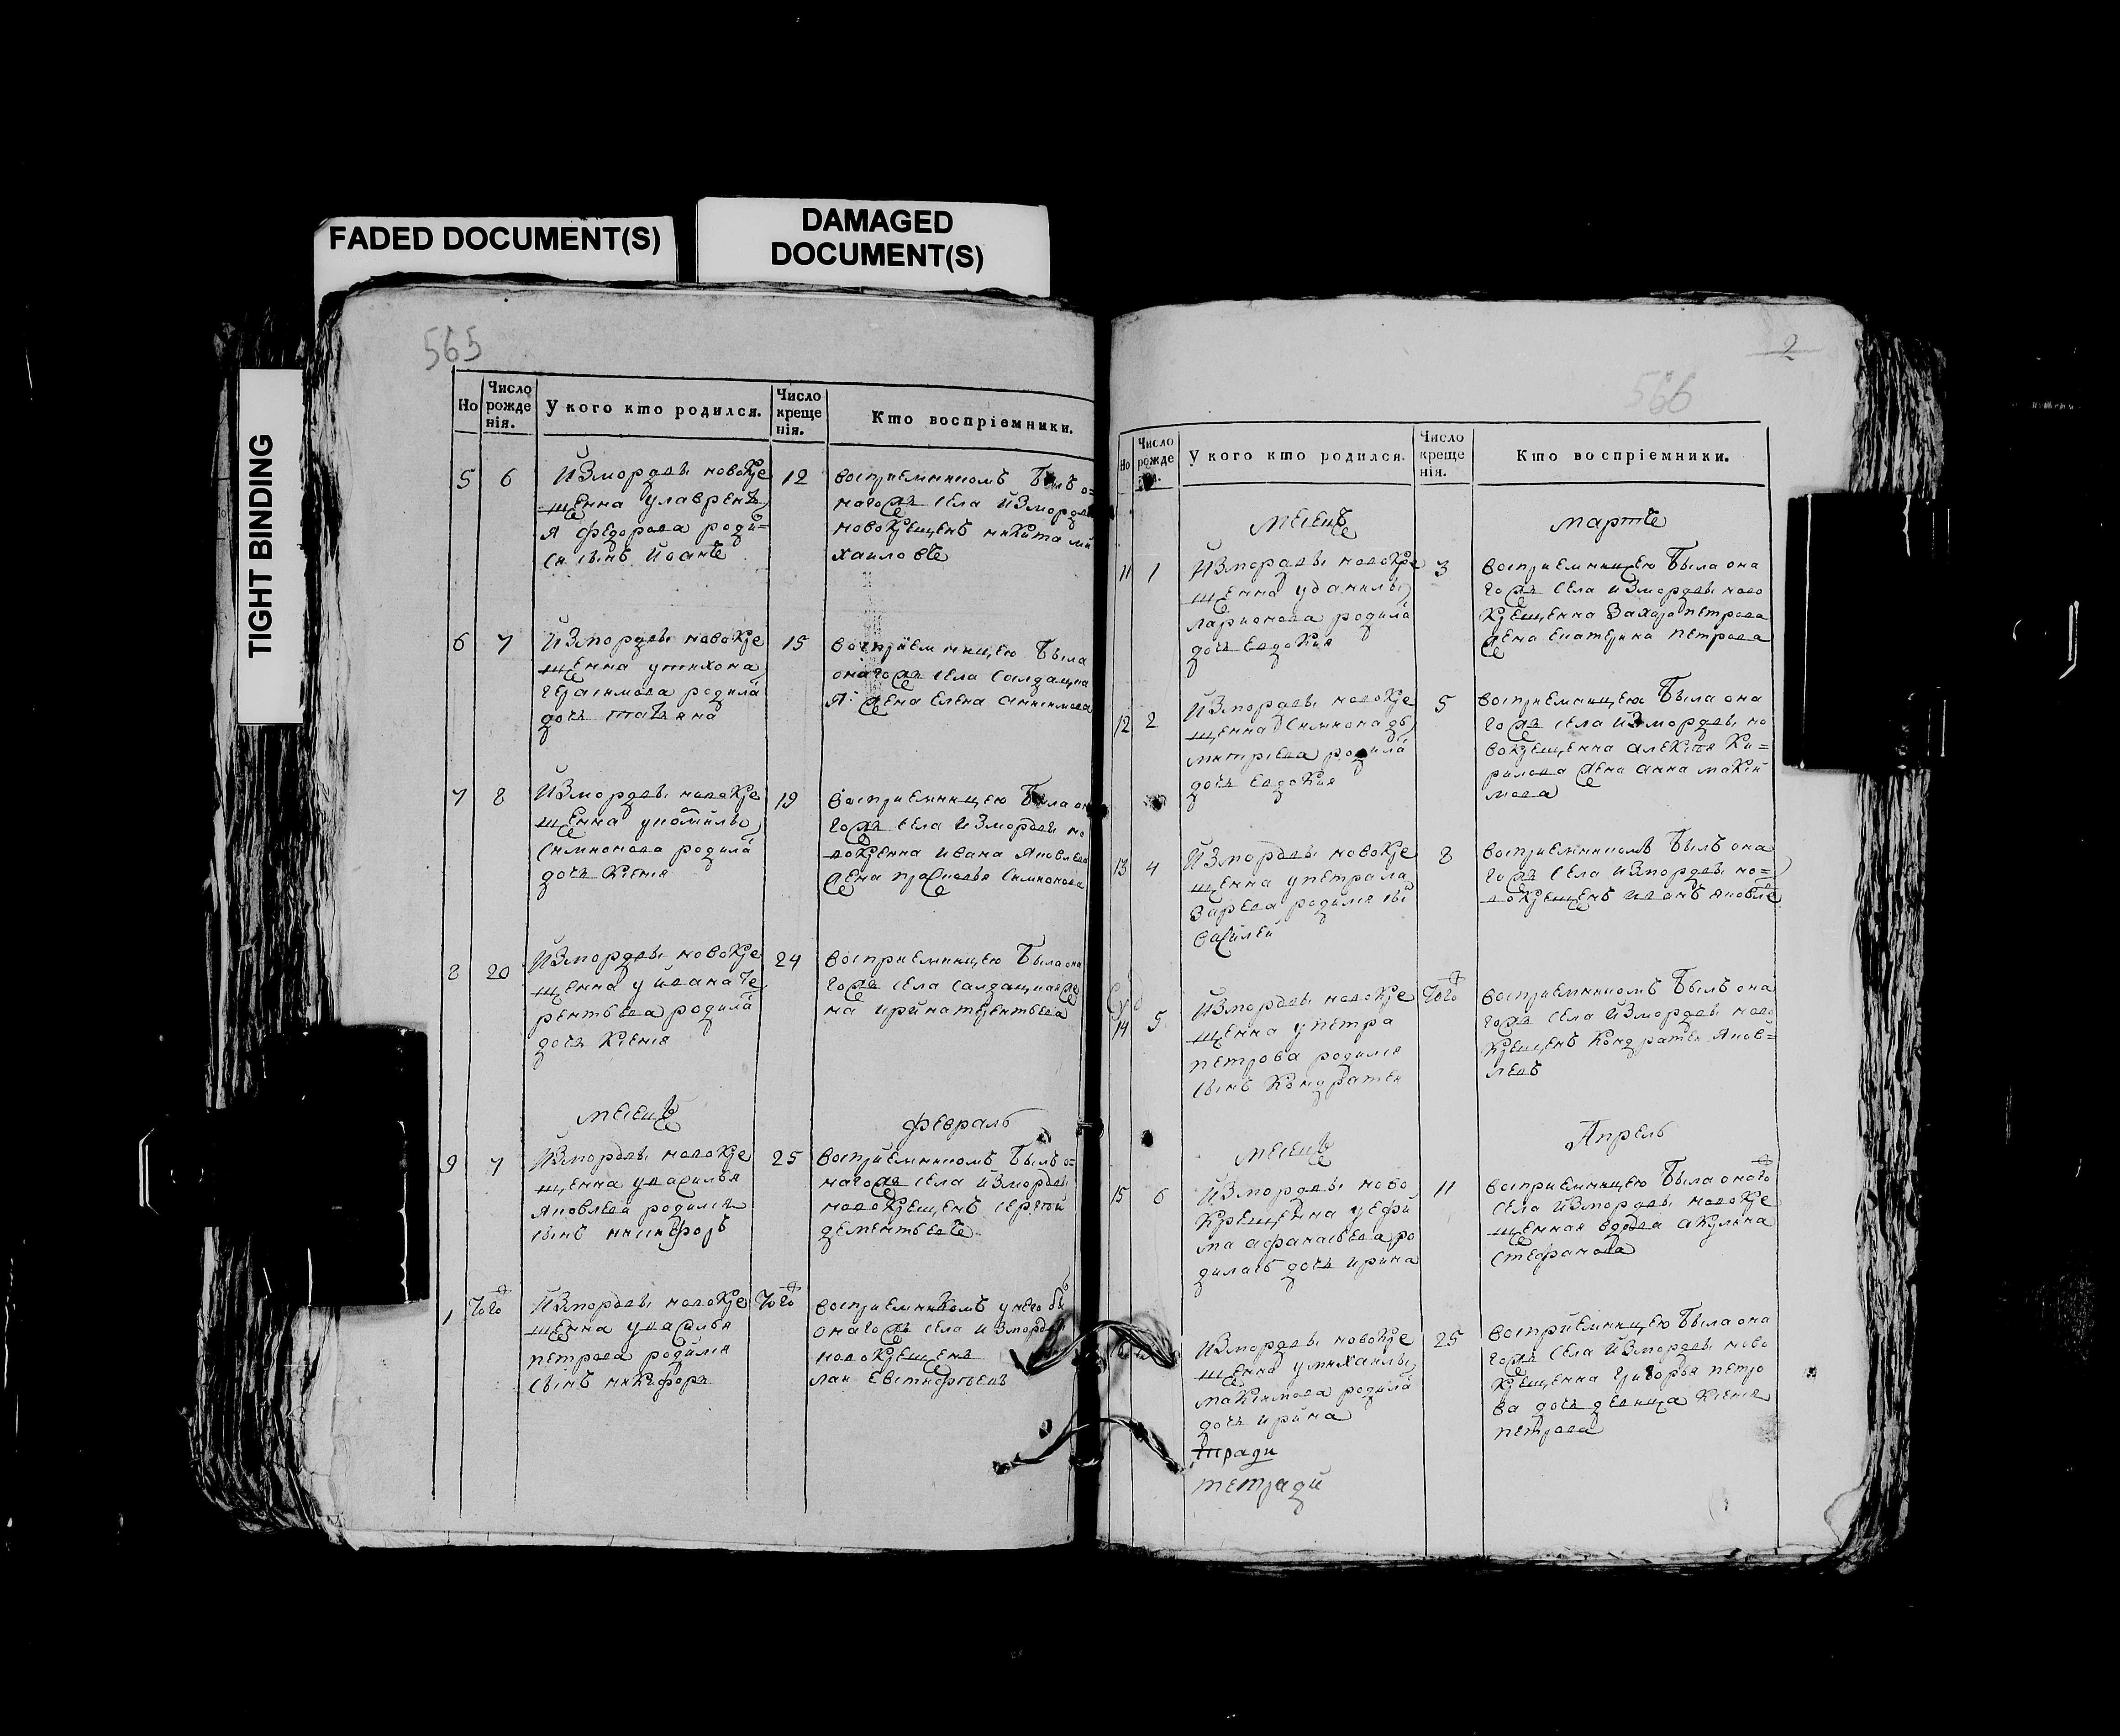 FADED DOCUMENT(S)
DAMAGED
DOCUMENT(S)
TIGHT BINDING
565
Но
Число
рожде
нія.
У кого кто родился.
Число
креще
нія.
Кто воспріемники.
5 6
Измордвы новокре
щенна улаврентъ
я федорова роди=
ся сынъ Иоанъ
12
восприемникомъ былъ о=
наго же села измордвы
новокрещенъ никита ми
хаиловъ
6 7
Измордвы новокре
щенна утихона
герасимова родила
дочь татьяна
15
восприемницею была
онаго же села салдацка
я жена елена
7 8
Измордвы новокре
щенна
симионова родила
дочь ксения
19
восприемницею была он
го же села измордвы но
вокренна ивана яковлева
жена прасковья симионова
8 20
Измордвы новокре
щенна уивана те
рентьева родила
дочь ксения
24
восприемницею была она
го же села салдацкая же
на ирина терентьева
месецъ
февраль
9 7
Измордвы новокре
щенна увасилья
яковлева родился
сынъ никифоръ
25
восприемникомъ былъ о=
наго же села измордвы
новокрещенъ сергей
дементьевъ
1 того
Измордвы новокре
щенна увасилья
петрова родился
сынъ никифоръ
того
восприемникомъ унего бы
онаго же села измордвы
новокрещенъ
566
2
Но
Число
рожде
У кого кто родился.
Число
креще
нія.
Кто воспріемники.
месецъ
мартъ
11 1
Измордвы новокре
щенна уданилы
ларионова родила
дочь евдокия
3
восприемницею была она
го же села измордвы ново
крещенна захара петрова
жена екатерина петрова
12 2
Измордвы новокре
щенна симиона дъ
митриева родила
дочь евдокия
5
восприемницею была она
го же села измордвы но
вокрещенна алексея ки=
рилова жена анна максий
мова
13 4
Измордвы новокре
щенна упетра ла
зарева родился сы
василей
8
восприемникомъ былъ она
го же села измордвы но=
вокрещенъ иванъ яковле
14 5
Измордвы новокре
щенна упетра
петрова родился
сынъ кондратей
того
восприемникомъ былъ она
го же села измордвы ново
крещенъ кондратей яков=
левъ
месецъ
Апрель
15 6
Измордвы ново
крещенна уефи
ма афанасьева ро
дилась дочь ирина
11
восприемницею была онаго
села измордвы новокре
щенная вдова акулина
стефанова
Измордвы новокре
щенна умихаилы
максимова родила
дочь ирина
25
восприемницею была она
го же села измордвы ново
крещенна григорья петро
ва дочь девица ксения
петрова
тетради